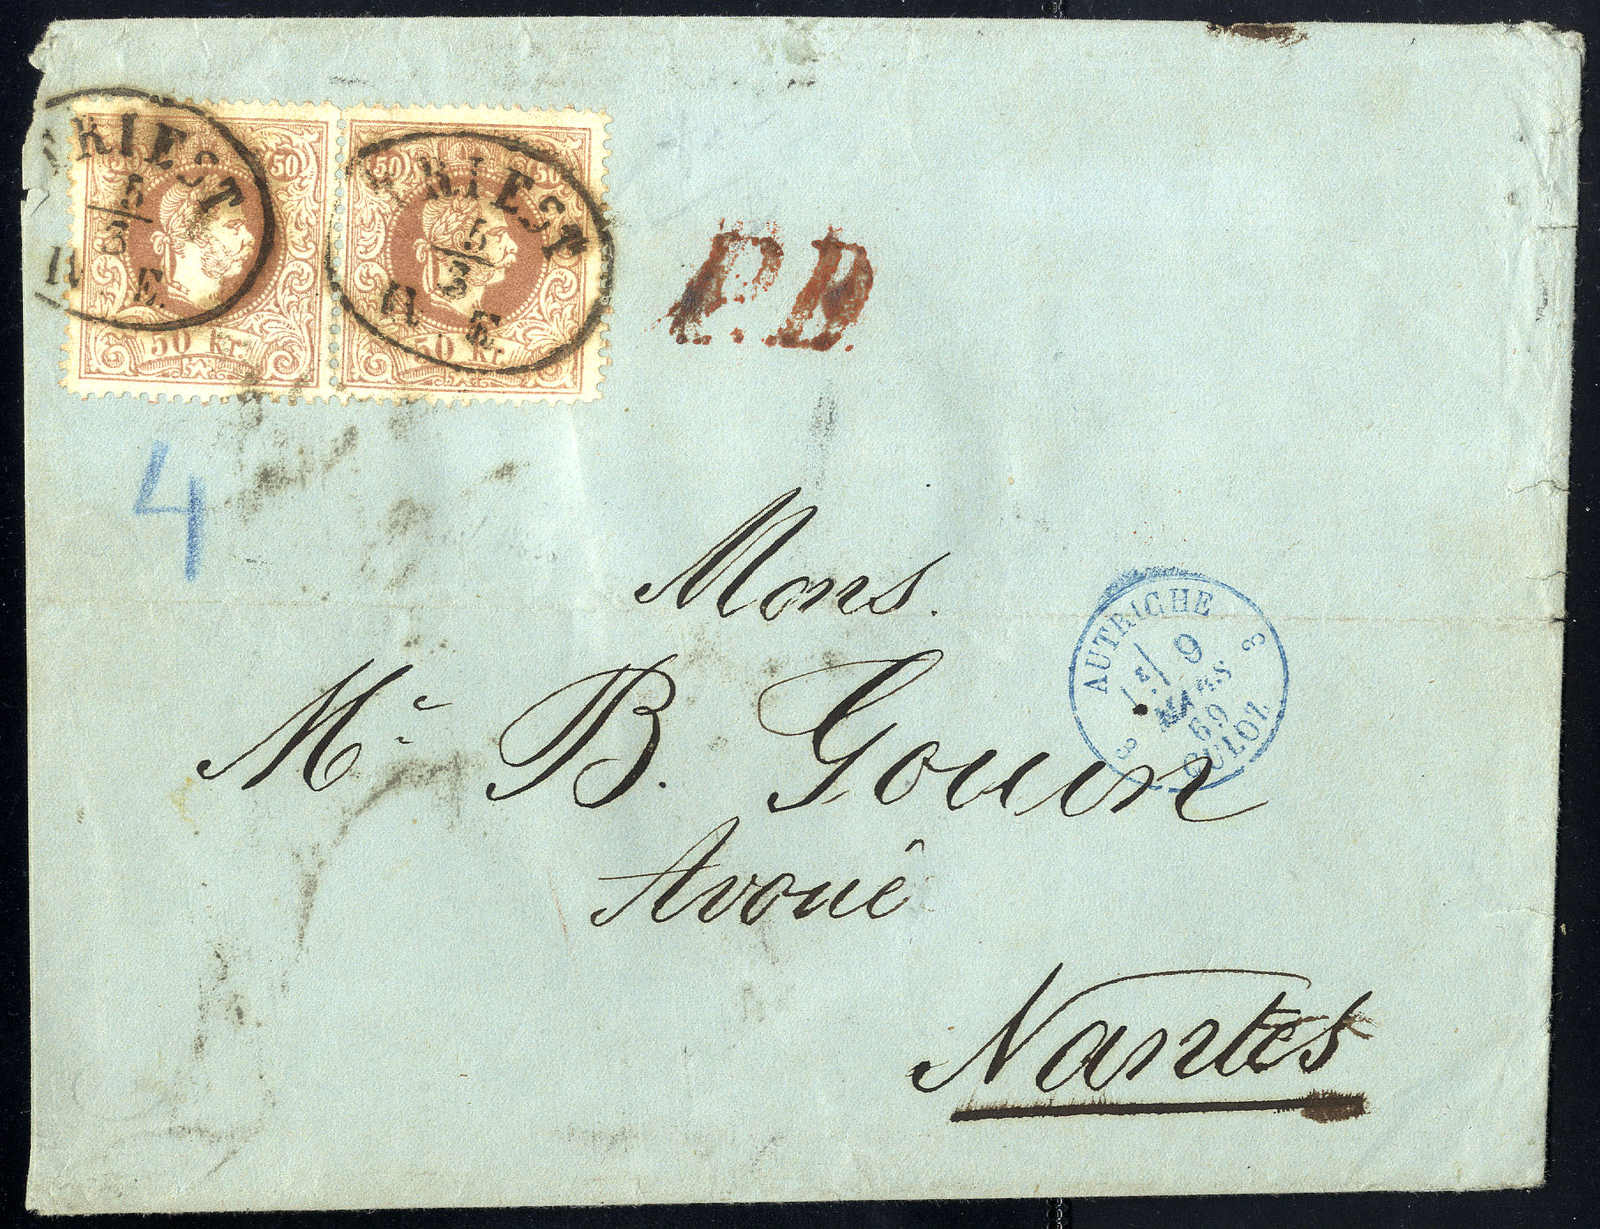 TRIEST
5/3
II E.
50 50
50 Kr.
TRIEST
5/3
II E.
50 50
50 Kr.
P.D.
4
Mons.
Mr B. Gouin
Avoué
Nantes
3 AUTRICHE 3
9
MARS
69
CULOZ